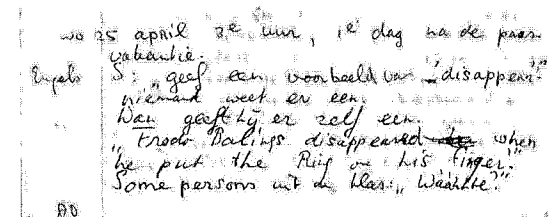 wo 25 april 3e uur, 1e dag na de paas
vakantie.
Engels S: "geef een voorbeeld van "disappear"
niemand weet er een.
Dan geeft hij er zelf een.
"Frodo Balings disappeared when
he put the Ring on his finger."
Some persons uit de klas: "Wáááblie?"